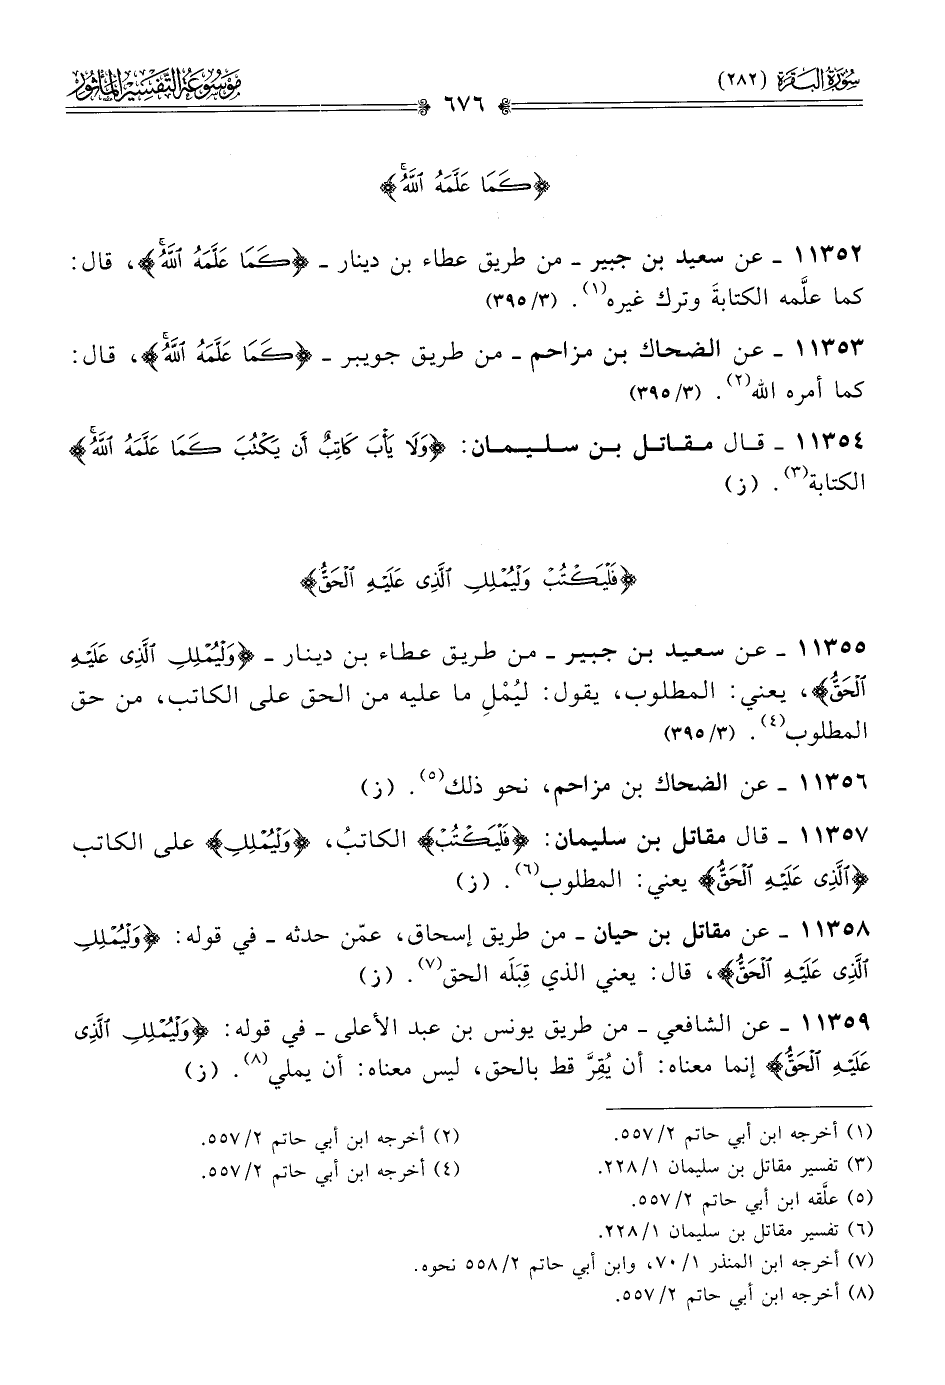 سُورَةُ البَقَرَة (٢٨٢)
مَوْسُوعَة التَّفْسِير المَأْثُور
٦٧٦
﴿كَمَا عَلَّمَهُ ٱللَّهُۚ﴾
١١٣٥٢ ـ عن سعيد بن جبير ـ من طريق عطاء بن دينار ـ ﴿كَمَا عَلَّمَهُ ٱللَّهُۚ﴾، قال:
كما علَّمه الكتابةَ وترك غيره(١). (٣/ ٣٩٥)
١١٣٥٣ ـ عن الضحاك بن مزاحم ـ من طريق جويبر ـ ﴿كَمَا عَلَّمَهُ ٱللَّهُۚ﴾، قال:
كما أمره الله(٢). (٣/ ٣٩٥)
١١٣٥٤ ـ قال مقاتل بن سليمان: ﴿وَلَا يَأْبَ كَاتِبٌ أَن يَكْتُبَ كَمَا عَلَّمَهُ ٱللَّهُۚ﴾
الكتابة(٣). (ز)
﴿فَلْيَكْتُبْ وَلْيُمْلِلِ ٱلَّذِى عَلَيْهِ ٱلْحَقُّ﴾
١١٣٥٥ ـ عن سعيد بن جبير ـ من طريق عطاء بن دينار ـ ﴿وَلْيُمْلِلِ ٱلَّذِى عَلَيْهِ
ٱلْحَقُّ﴾، يعني: المطلوب، يقول: ليُمْلِ ما عليه من الحق على الكاتب، من حق
المطلوب(٤). (٣/ ٣٩٥)
١١٣٥٦ ـ عن الضحاك بن مزاحم، نحو ذلك(٥). (ز)
١١٣٥٧ ـ قال مقاتل بن سليمان: ﴿فَلْيَكْتُبْ﴾ الكاتبُ، ﴿وَلْيُمْلِلِ﴾ على الكاتب
﴿ٱلَّذِى عَلَيْهِ ٱلْحَقُّ﴾ يعني: المطلوب(٦). (ز)
١١٣٥٨ ـ عن مقاتل بن حيان ـ من طريق إسحاق، عمّن حدثه ـ في قوله: ﴿وَلْيُمْلِلِ
ٱلَّذِى عَلَيْهِ ٱلْحَقُّ﴾، قال: يعني الذي قِبَلَه الحق(٧). (ز)
١١٣٥٩ ـ عن الشافعي ـ من طريق يونس بن عبد الأعلى ـ في قوله: ﴿وَلْيُمْلِلِ ٱلَّذِى
عَلَيْهِ ٱلْحَقُّ﴾ إنما معناه: أن يُقِرَّ قط بالحق، ليس معناه: أن يملي(٨). (ز)
(١) أخرجه ابن أبي حاتم ٢/ ٥٥٧.
(٢) أخرجه ابن أبي حاتم ٢/ ٥٥٧.
(٣) تفسير مقاتل بن سليمان ١/ ٢٢٨.
(٤) أخرجه ابن أبي حاتم ٢/ ٥٥٧.
(٥) علَّقه ابن أبي حاتم ٢/ ٥٥٧.
(٦) تفسير مقاتل بن سليمان ١/ ٢٢٨.
(٧) أخرجه ابن المنذر ١/ ٧٠، وابن أبي حاتم ٢/ ٥٥٨ نحوه.
(٨) أخرجه ابن أبي حاتم ٢/ ٥٥٧.